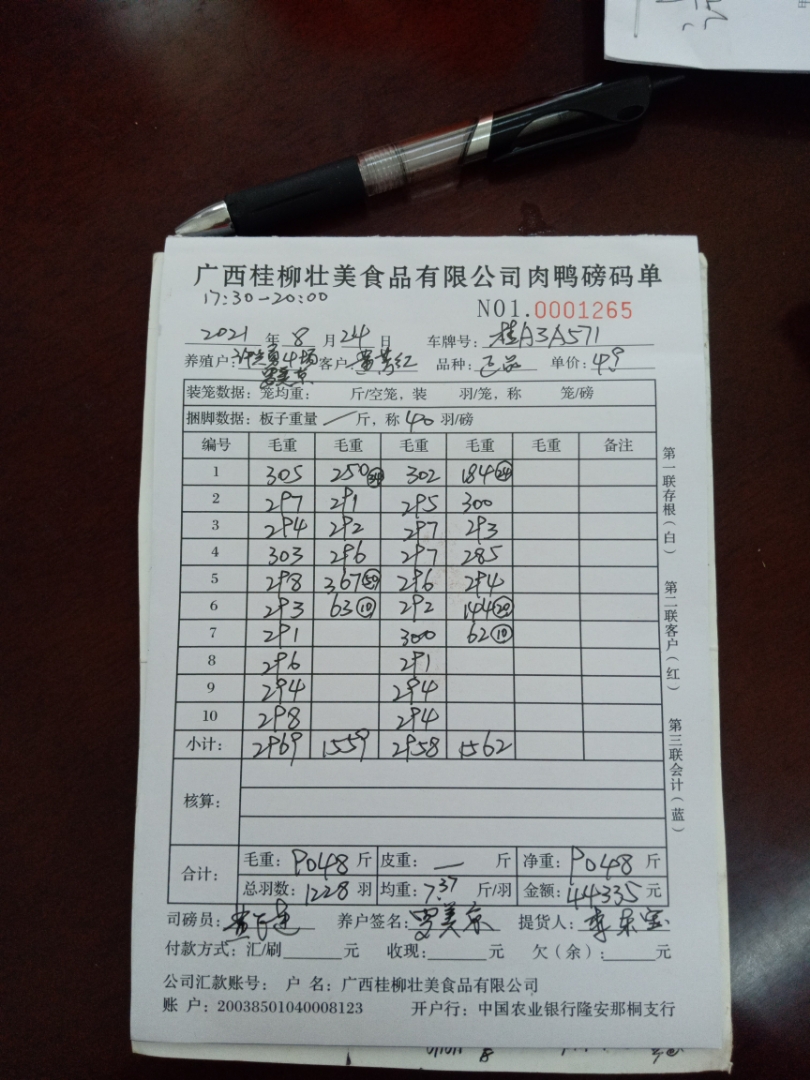 广西桂柳壮美食品有限公司肉鸭磅码单
17:30-20:00
NO1.0001265
2021 年 8 月 24 日 车牌号: 桂A3A571
养殖户: 场 客户: 黄 红 品种: 正品 单价: 49
罗美京
装笼数据: 笼均重: 斤/空笼, 装 羽/笼, 称 笼/磅
捆脚数据: 板子重量 — 斤, 称 40 羽/磅
编号 毛重 毛重 毛重 毛重 毛重 备注
1 305 250 34 302 184 24
2 297 291 295 300
3 294 292 297 293
4 303 296 297 285
5 298 367 50 296 294
6 293 63 10 292 144 20
7 291 300 62 10
8 296 291
9 294 294
10 298 294
小计: 2969 1559 2958 1562
核算:
合计: 毛重: 9048 斤 皮重: — 斤 净重: 9048 斤
总羽数: 1228 羽 均重: 7.37 斤/羽 金额: 44335 元
司磅员: 养户签名: 罗美京 提货人: 李
付款方式: 汇/刷 元 收现: 元 欠(余): 元
公司汇款账号: 户 名: 广西桂柳壮美食品有限公司
账 户: 20038501040008123 开户行: 中国农业银行隆安那桐支行
第一联存根(白)
第二联客户(红)
第三联会计(蓝)